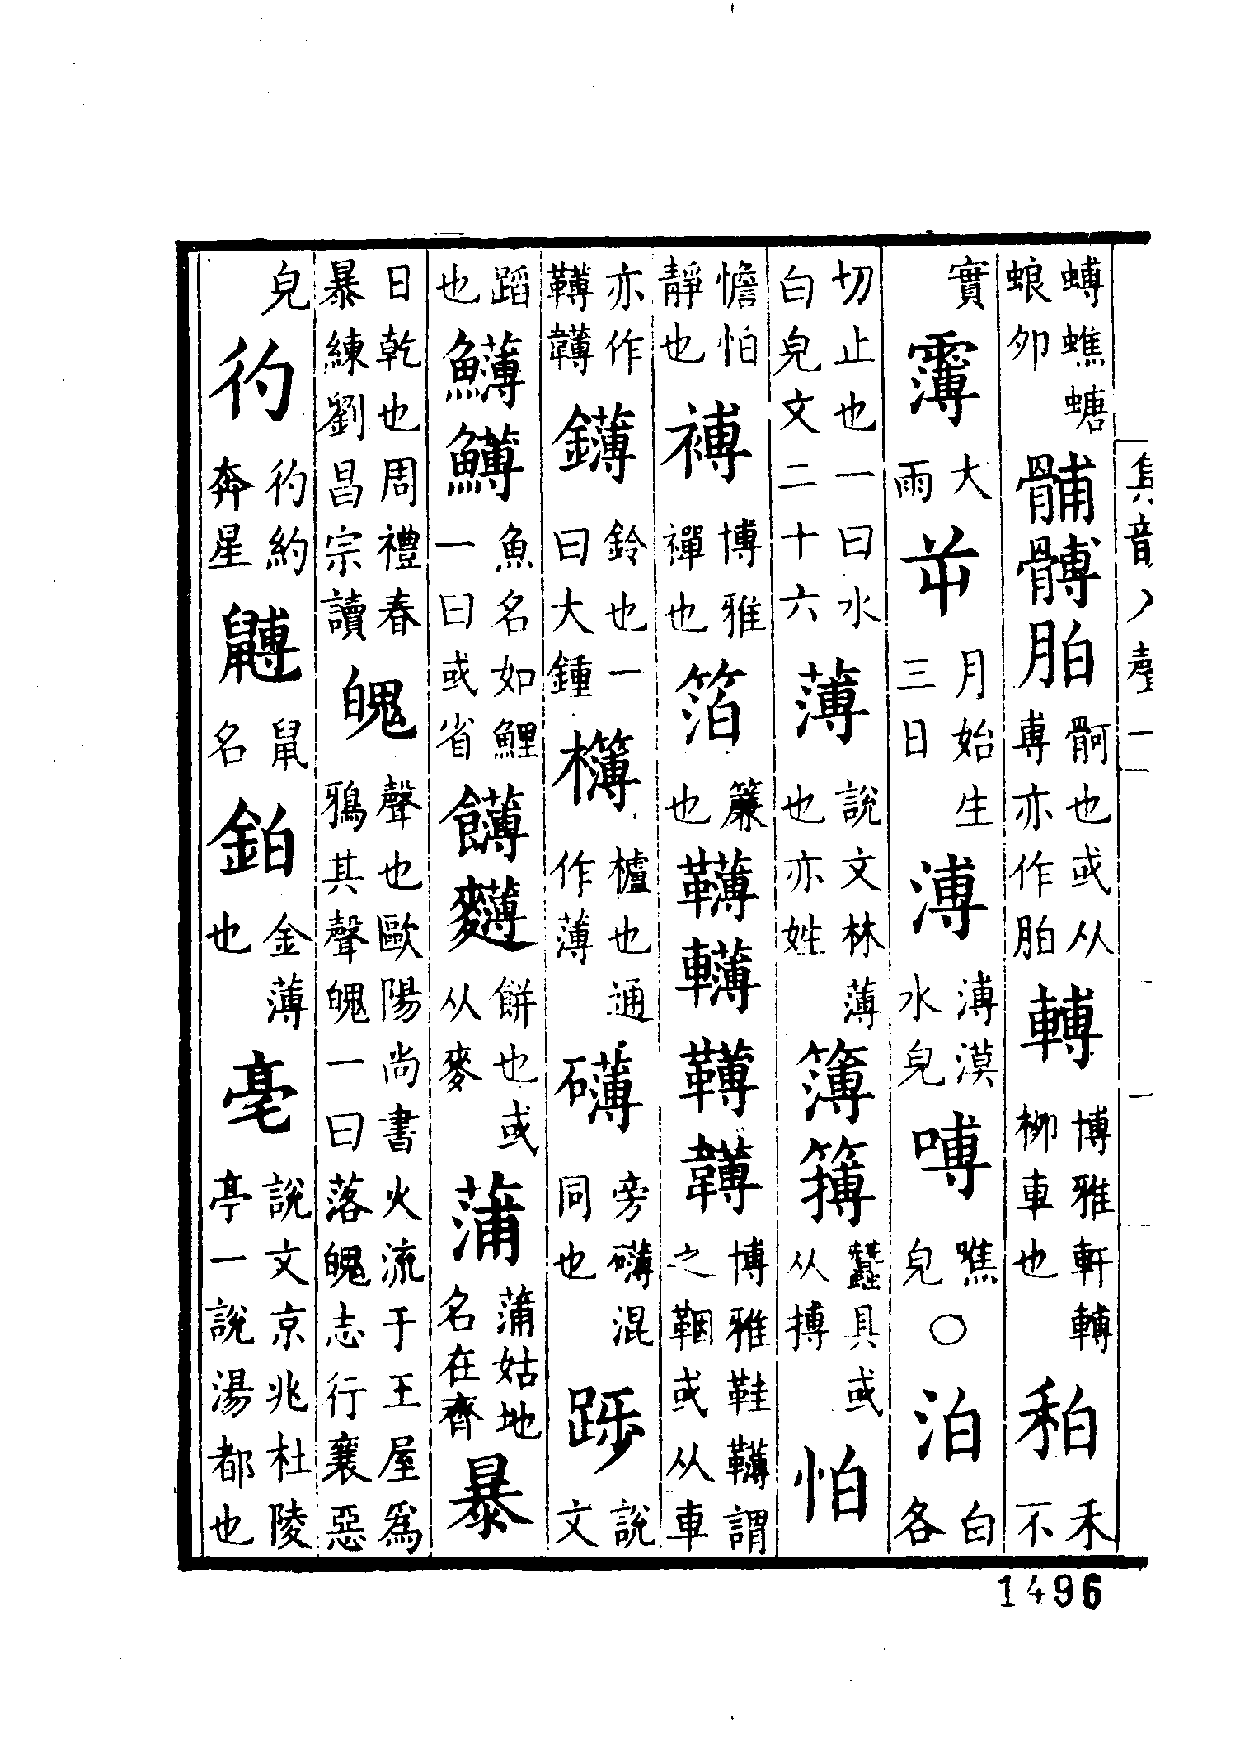 䗚蟭螗蜋夘 䯙髆胉 䯊也或从尃亦作胉 䡌 博雅軒䡌柳車也 禾不
實 大雨 月始生三日 溥 溥漠水皃 噍皃 ○ 泊 白各
切止也一曰水白皃文二十六 薄 說文林薄也亦姓 簿 蠶具或从搏 怕
憺怕靜也 博雅襌也 箔 簾也 博雅鞋謂之鞇或从車
亦作 鑮 鈴也一曰大鍾 欂 櫨也通作薄 礴 旁礴混同也 說文
蹈也 魚名如鯉一曰或省 餅也或从麥 蒲 蒲姑地名在齊 暴
日乾也周禮春暴練劉昌宗讀 魄 聲也歐陽尚書火流于王屋爲鴉其聲魄一曰落魄志行衰惡
皃 彴 彴約奔星 鼠名 鉑 金薄也 亳 說文京兆杜陵亭一說湯都也
集韻入聲一
1496